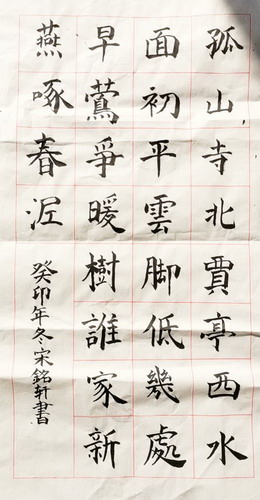 孤山寺北賈亭西水
面初平雲脚低幾處
早鶯爭暖樹誰家新
燕啄春泥
癸卯年冬宋銘軒書